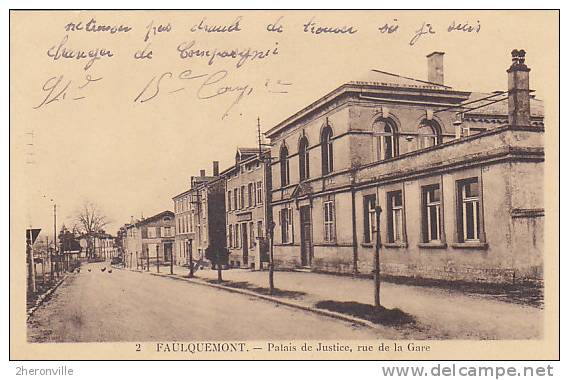 retrouver pas chaud de trouver si je suis
changer de compagnie
15e Comp
2 FAULQUEMONT. — Palais de Justice, rue de la Gare
2heronville
www.delcampe.net